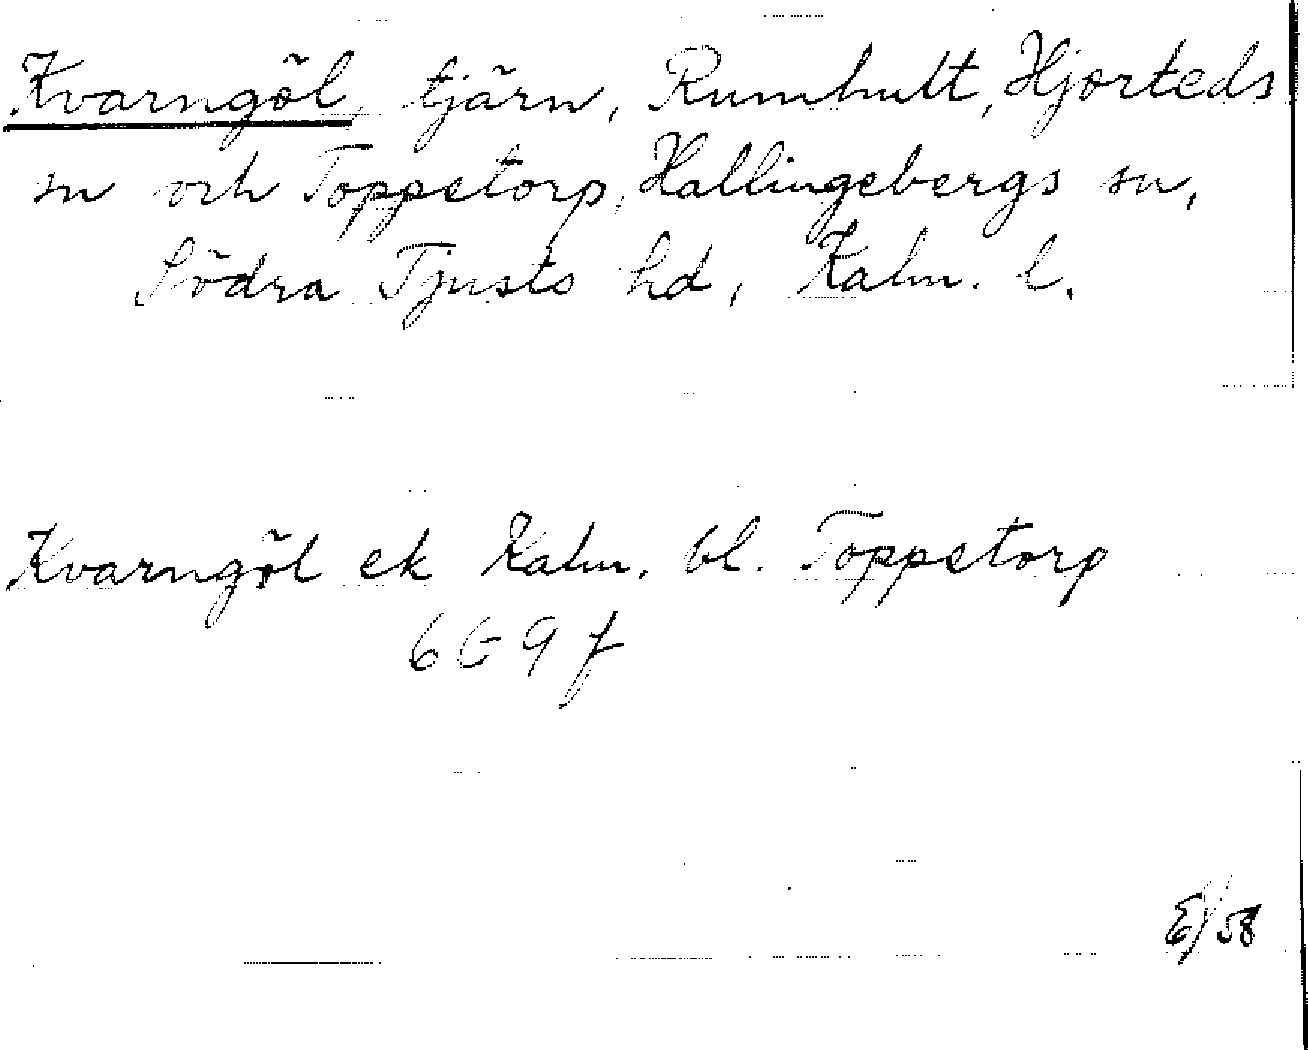 Kvarngöl, tjärn, Rumhult, Hjorteds
sn och Toppetorp, Hallingebergs sn,
Södra Tjusts hd, Kalm. l.
Kvarngöl ek Kalm. bl. Toppetorp
6G9f
E/58